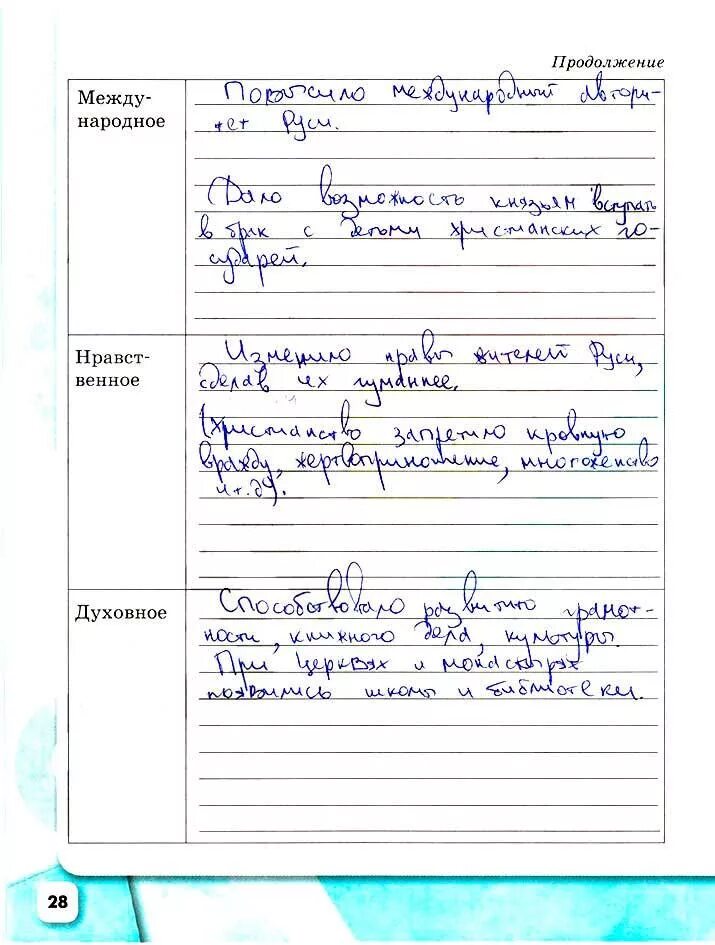 Продолжение
Между-
народное
Повысило международный автори-
тет Руси.
Дало возможность князьям вступать
в брак с детьми христианских го-
сударей.
Нравст-
венное
Изменило нравы жителей Руси,
сделав их гуманнее.
(Христианство запретило кровную
вражду, жертвоприношение, многоженство
и т.д).
Духовное
Способствовало развитию грамот-
ности, книжного дела, культуры.
При церквях и монастырях
появились школы и библиотеки.
28